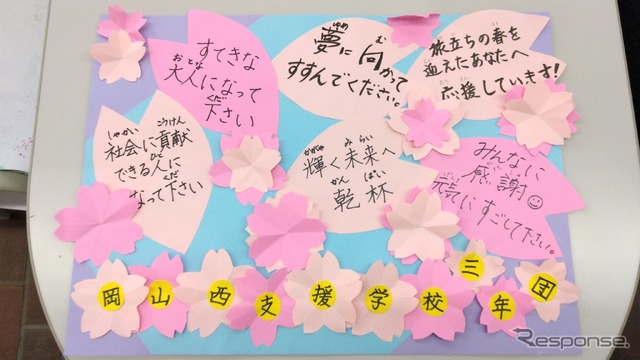 すてきな
大人になって
下さい
夢に向かって
すすんでください。
旅立ちの春を
迎えたあなたへ
応援しています!
社会に貢献
できる人に
なって下さい
輝く未来へ
乾杯
みんなに
感謝
元気にすごして下さい。
岡山西支援学校三年団
Response.